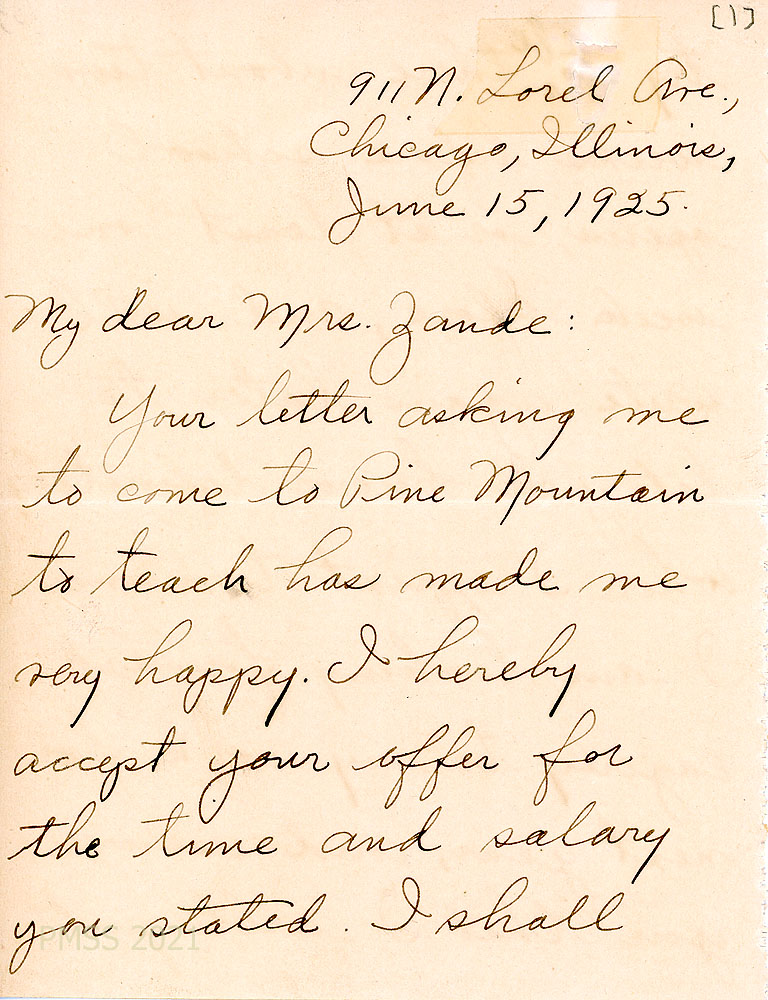 [1]
911 N. Lorel Ave.,
Chicago, Illinois,
June 15, 1925.
My dear Mrs. Zande:
Your letter asking me
to come to Pine Mountain
to teach has made me
very happy. I hereby
accept your offer for
the time and salary
you stated. I shall
PMSS 2021